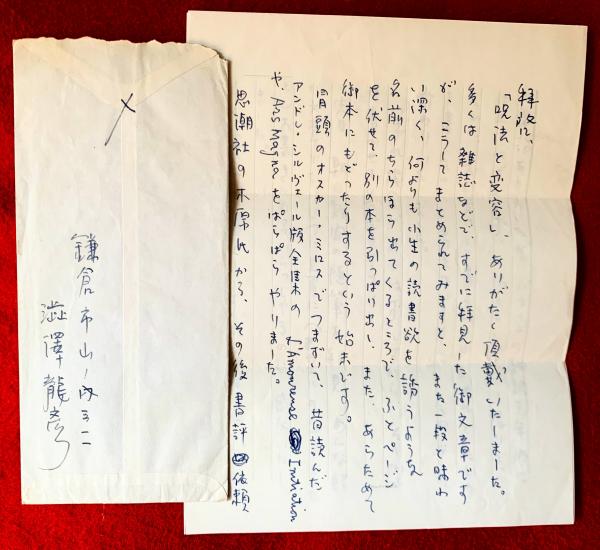 拝啓、
「呪法と変容」、ありがたく頂戴いたしました。
多くは雑誌などで、すでに拝見した御文章です
が、こうしてまとめられてみますと、また一段と味わ
い深く、何よりも小生の読書欲を誘うような
名前のちらほら出てくるところで、ふとページ
を伏せて、別の本を引っぱり出し、また、あらためて
御本にもどったりするという始末です。
冒頭のオスカー・ミロスでつまずいて、昔読んだ
アンドレ・シルヴェール版全集の L'Amoureuse Intiation
や、Ars Magna をぱらぱらやりました。
思潮社の木原氏から、その後書評依頼
鎌倉市山ノ内
澁澤龍彦